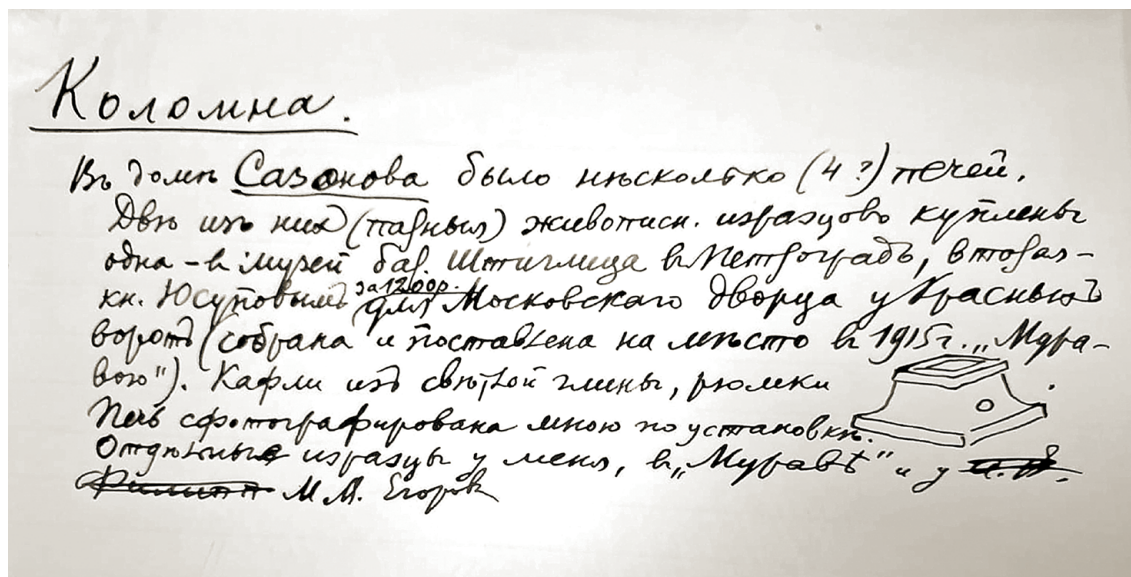 Коломна.
Въ домѣ Сазонова было нѣсколько (4?) печей.
Двѣ изъ них (парныя) живописн. изразцовъ куплены
одна – в музей бар. Штиглица в Петроградѣ, вторая –
кн. Юсуповымъ за 1200р. для Московскаго дворца у Красныхъ
воротъ (собрана и поставлена на мѣсто в 1915 г. „Мура-
вою"). Кафли изъ свѣтлой глины, рюмки
Печь сфотографирована мною по установкѣ.
Отдѣльные изразцы у меня, в „Муравѣ" и у
М.М. Егорова